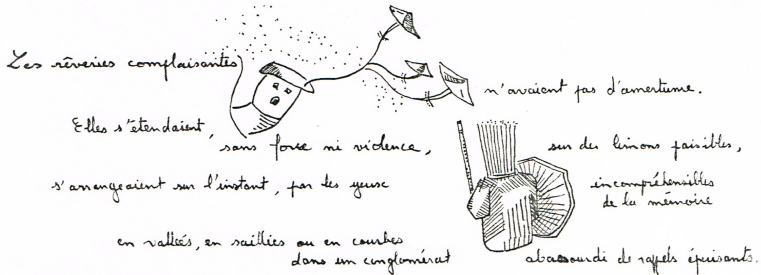 Les rêveries complaisantes n'avaient pas d'amertume.
Elles s'étendaient, sans force ni violence, sur des limons paisibles,
s'arrangeaient sur l'instant, par les yeux incompréhensibles
de la mémoire
en vallées, en saillies ou en courbes
dans un conglomérat abasourdi de rappels épuisants.